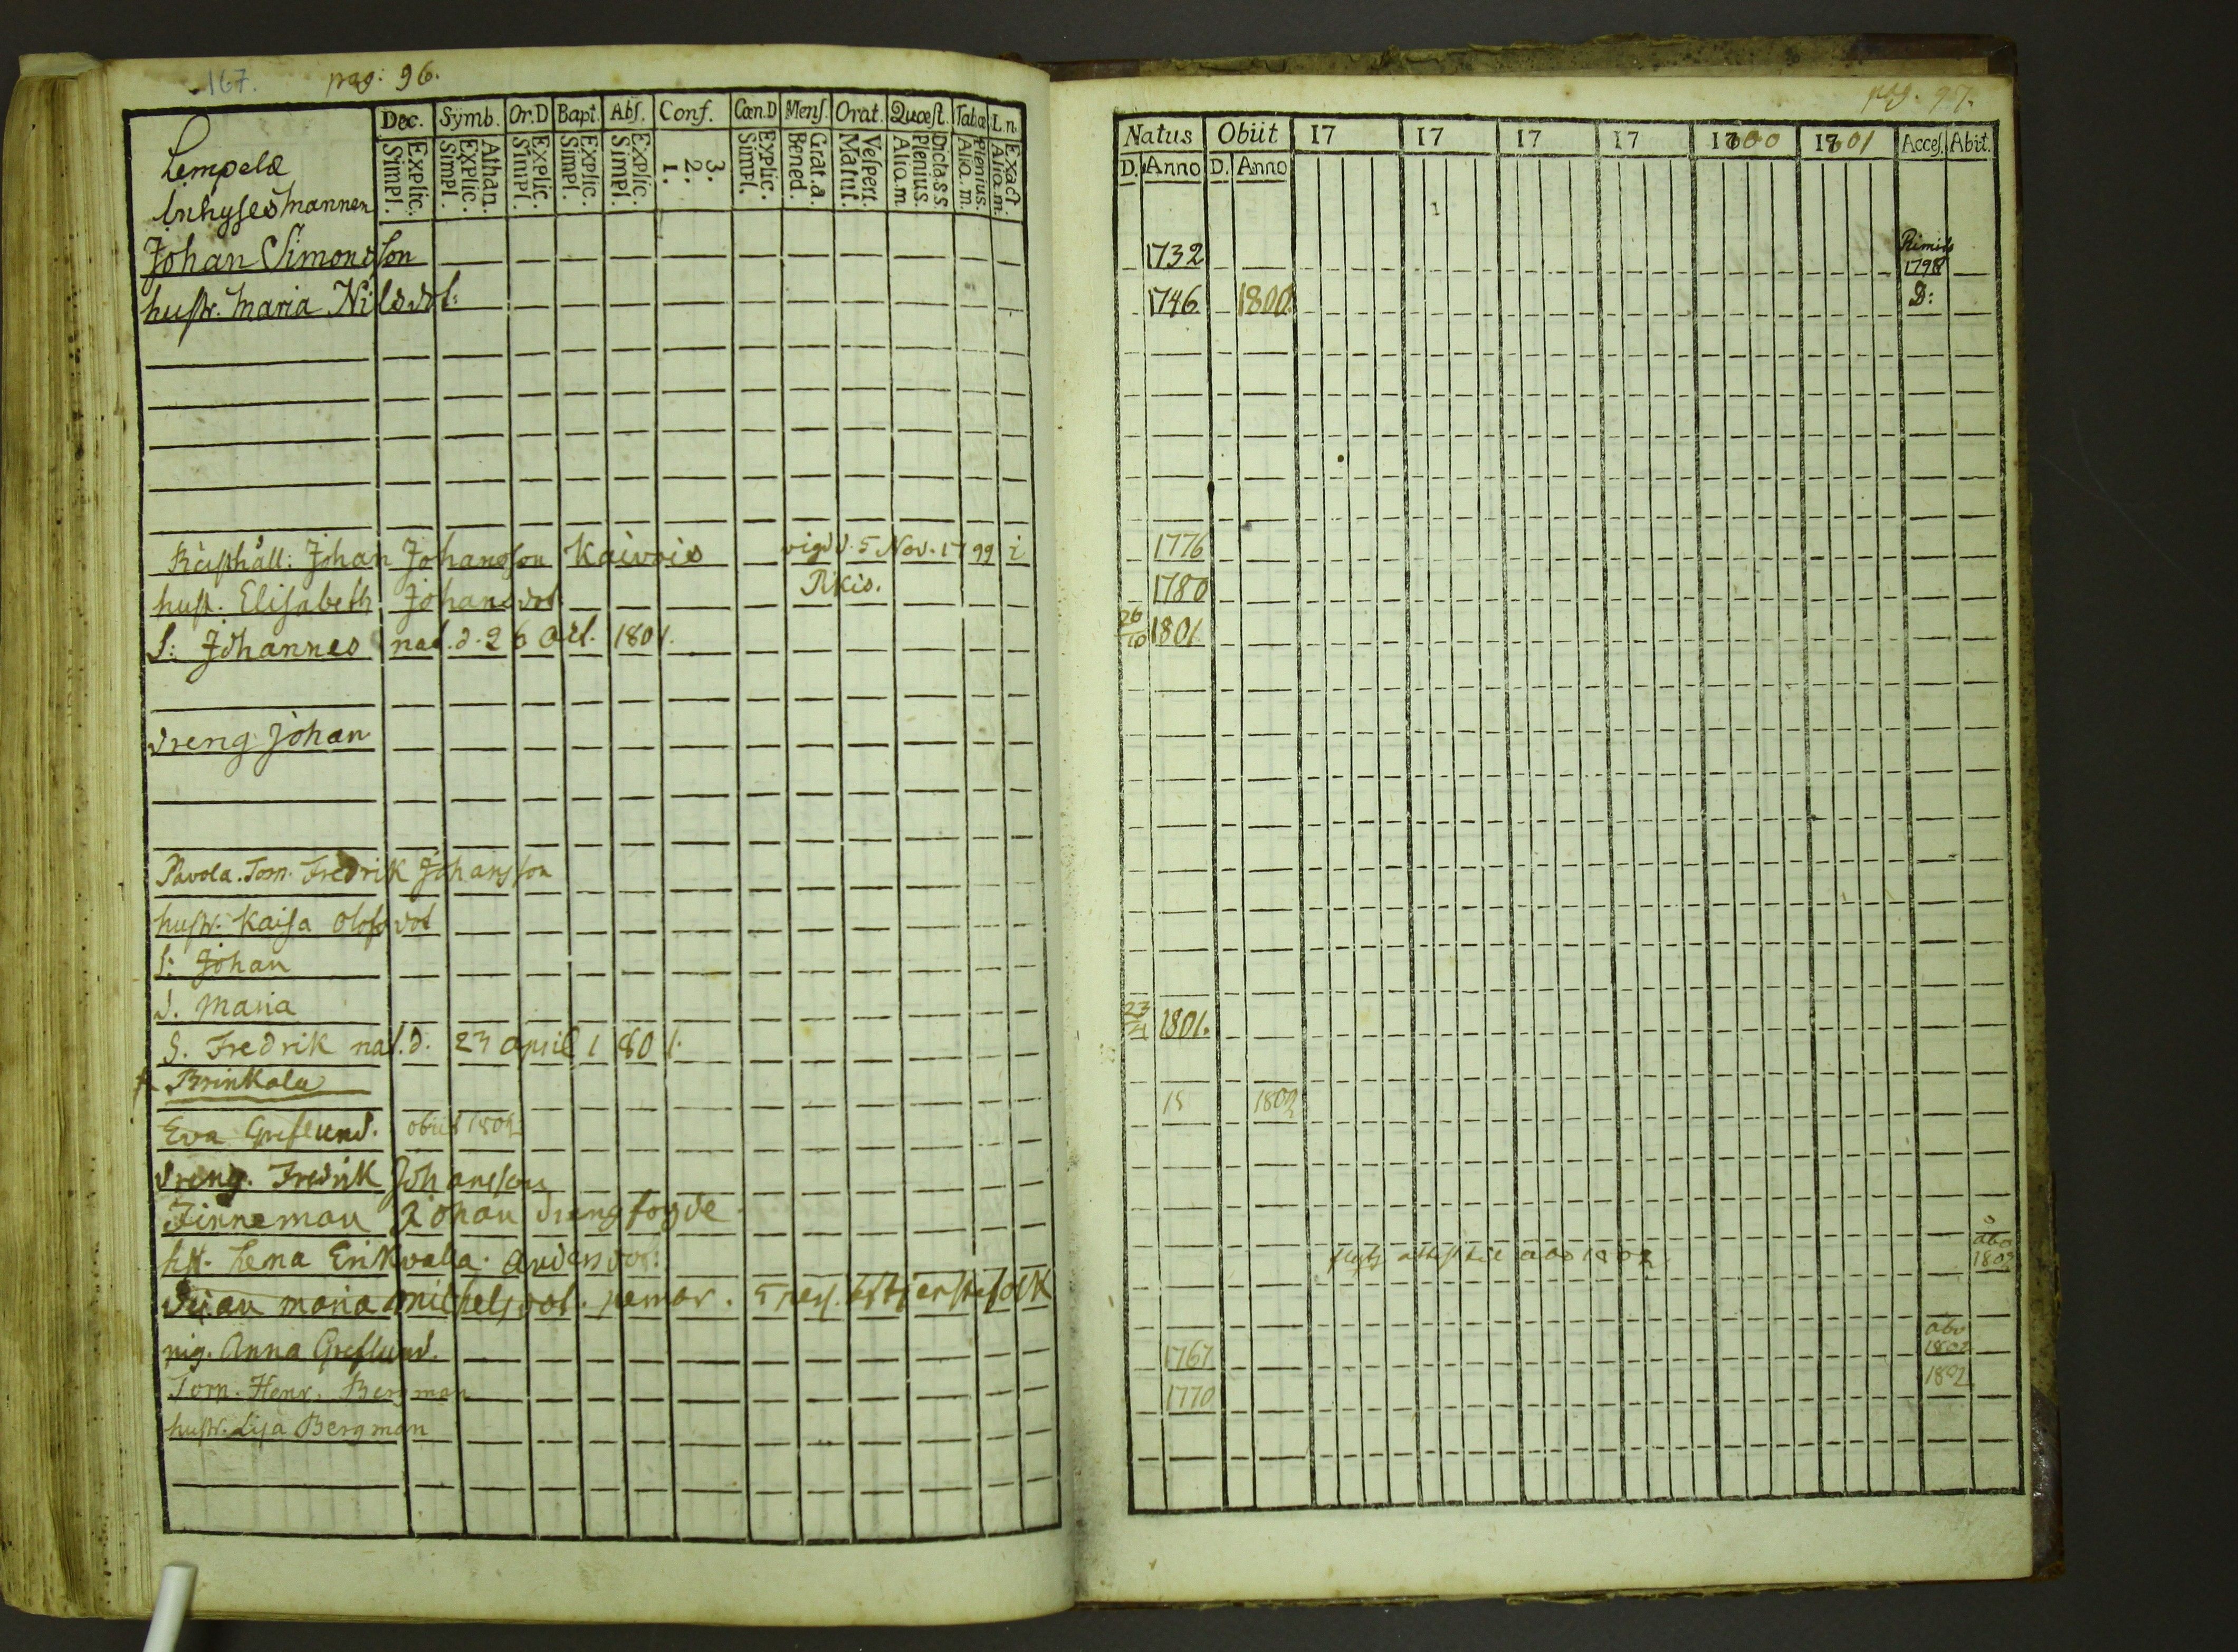 167. pag: 96.
Dec. Symb. Or.D Bapt. Abs. Conf. Cœn.D Mens. Orat. Quæst. Tabæ L.n.
Simpl. Explic. Simpl. Explic. Athan. Simpl. Explic. Simpl. Explic. Simpl. Explic. 1. 2. 3. Simpl. Explic. Bened. Grat. a. Matut. Vespert. Aliq.m. Plenius. Dicta.S.S. Aliq.m. Plenius. Aliq.m. Exact.
Lempelä
Inhysesmannen
Johan Simonsson
hustr. Maria Nilsdot:
Rusthåll: Johan Johansson Kaivois vigd d. 5 Nov. 1799 i
hust. Elisabeth Johansdot Pikis.
S: Johannes nat. d. 26 Oct. 1801.
dreng Johan
Pavola. Torp. Fredrik Johansson
hustr. Kaisa Olofsdot
S: Johan
d. Maria
S. Fredrik nat. d. 23 April 1801.
Brinkala
Eva Greflund. obiit 1802
dreng. Fredrik Johansson
Finneman Johan drengfogde
hst. Lena Erikvala. Andersdot:
Maria Michelsdot. pemar. 5
pig. Anna Greflund.
Torp. Henr. Bergman
hustr. Lisa Bergman
pag. 97.
Natus Obiit 17 17 17 17 1800 1801 Acces. Abit.
D. Anno D. Anno
1732 Rimito 1798
1746 1800 D:
1776
1780
26/10 1801
23/4 1801.
18 1802
attest til Abo 1802 Åbo 1802
1767 Abo 1802
1770 1802